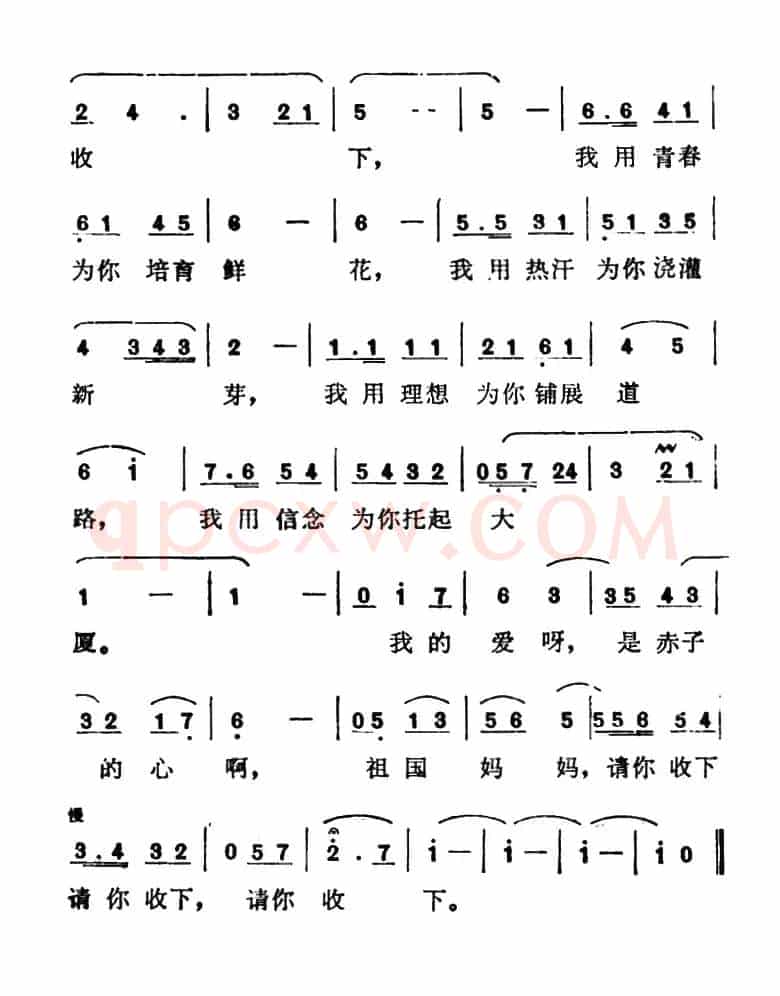 2 4 . | 3 2 1 | 5 - - | 5 — | 6 . 6 4 1 |
收 下, 我 用 青春
6 1 4 5 | 6 — | 6 — | 5 . 5 3 1 | 5 1 3 5 |
为你 培育 鲜 花, 我 用 热汗 为你 浇灌
4 3 4 3 | 2 — | 1 . 1 1 1 | 2 1 6 1 | 4 5 |
新 芽, 我 用 理想 为你 铺展 道
6 i | 7 . 6 5 4 | 5 4 3 2 | 0 5 7 2 4 | 3 2 1 |
路, 我 用 信念 为你 托起 大
qpcxw.COM
1 — | 1 — | 0 i 7 | 6 3 | 3 5 4 3 |
厦。 我 的 爱 呀, 是 赤子
3 2 1 7 | 6 — | 0 5 1 3 | 5 6 5 | 5 5 6 5 4 |
的 心 啊, 祖 国 妈 妈, 请你 收下
慢
3 . 4 3 2 | 0 5 7 | 2 . 7 | i — | i — | i — | i 0 ‖
请 你 收下, 请你 收 下。